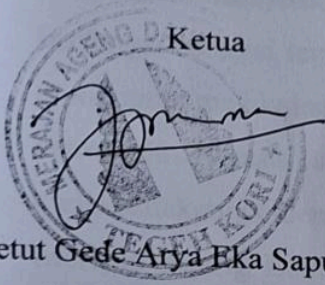 Ketua
MERAJAN AGENG D
TEGEH KORI
etut Gede Arya Eka Sapu